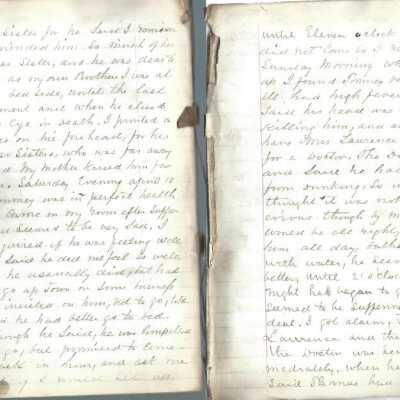 Sister for he Said I romison
reminded him so Much of his
Sister, and he was dear to
as my own Brother. I was at
bed Side, until the last
ment and when he closed
Eye in death. I printed a
on his fore head, for his
Sisters, who was far away
My Mother kissed him for
Saturday Evening
was in perfect health
Came in my room after Supper
Seemed to be very Sad, I
quired if he was feeling well
Said he did not feel as well
he usually did, but had
go up town on Some buisness
insisted on him, not to go, told
he had better go to bed
he Said, he was Compelled
go, but promised to Come
back in hour, and ask me
if I would
until Eleven oclock
did not Come So I
Sunday Morning wh
up I found
ill had high fever
Said his head was
killing him, and as
have Mrs Lawrence
for a Doctor. The Do
and Said he had
from drinking. So w
thought it was not
all
him all day bathe
with water, he seem
better, until 2 oclock
night he began to g
Seemed to be Suffering
deal. I got alarm,
Lawrence and the
The Doctor was
medeately, when he
Said had